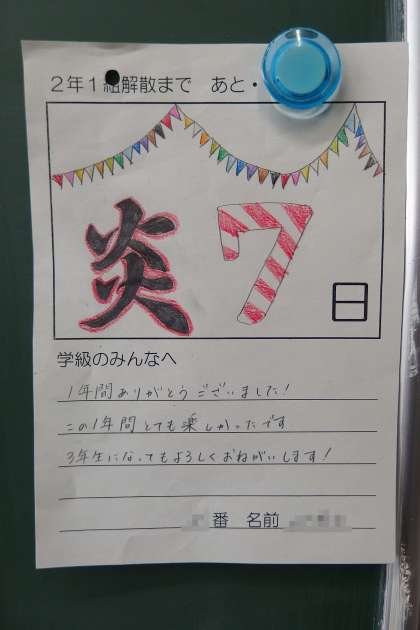 ２年１組解散まで　あと・
炎 7
日
学級のみんなへ
1年間ありがとうございました!
この1年間とても楽しかったです
3年生になってもよろしくおねがいします!
番　名前